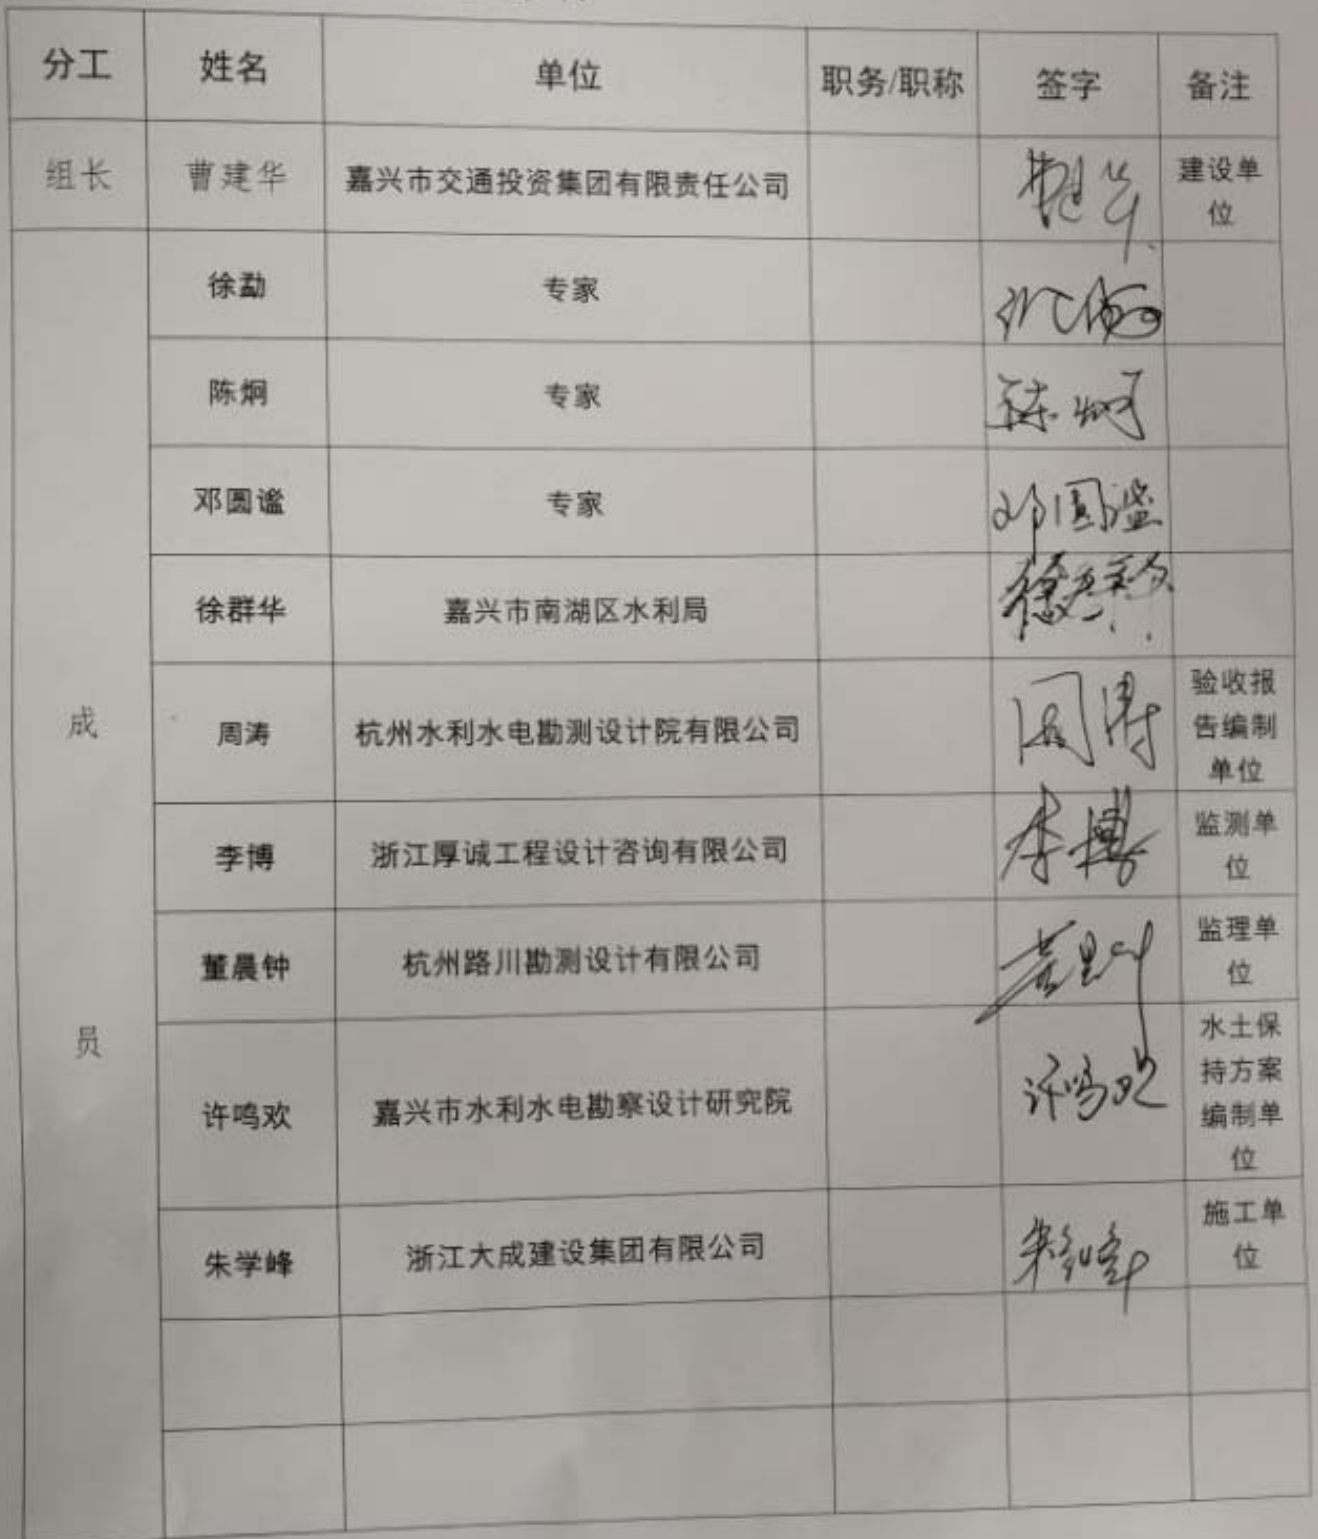 分工 姓名 单位 职务/职称 签字 备注
组长 曹建华 嘉兴市交通投资集团有限责任公司 建设单
位
徐勐 专家
陈炯 专家 陈炯
邓圆谧 专家 邓圆谧
徐群华 嘉兴市南湖区水利局
成
周涛 杭州水利水电勘测设计院有限公司 周涛 验收报
告编制
单位
李博 浙江厚诚工程设计咨询有限公司 李博 监测单
位
董晨钟 杭州路川勘测设计有限公司 监理单
位
员
许鸣欢 嘉兴市水利水电勘察设计研究院 许鸣欢 水土保
持方案
编制单
位
朱学峰 浙江大成建设集团有限公司 朱学峰 施工单
位